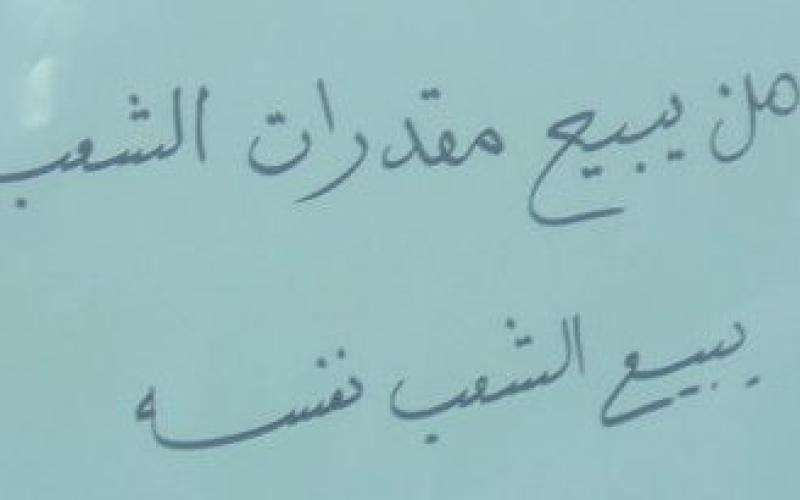 من يبيع مقدرات الشعب
يبيع الشعب نفسه